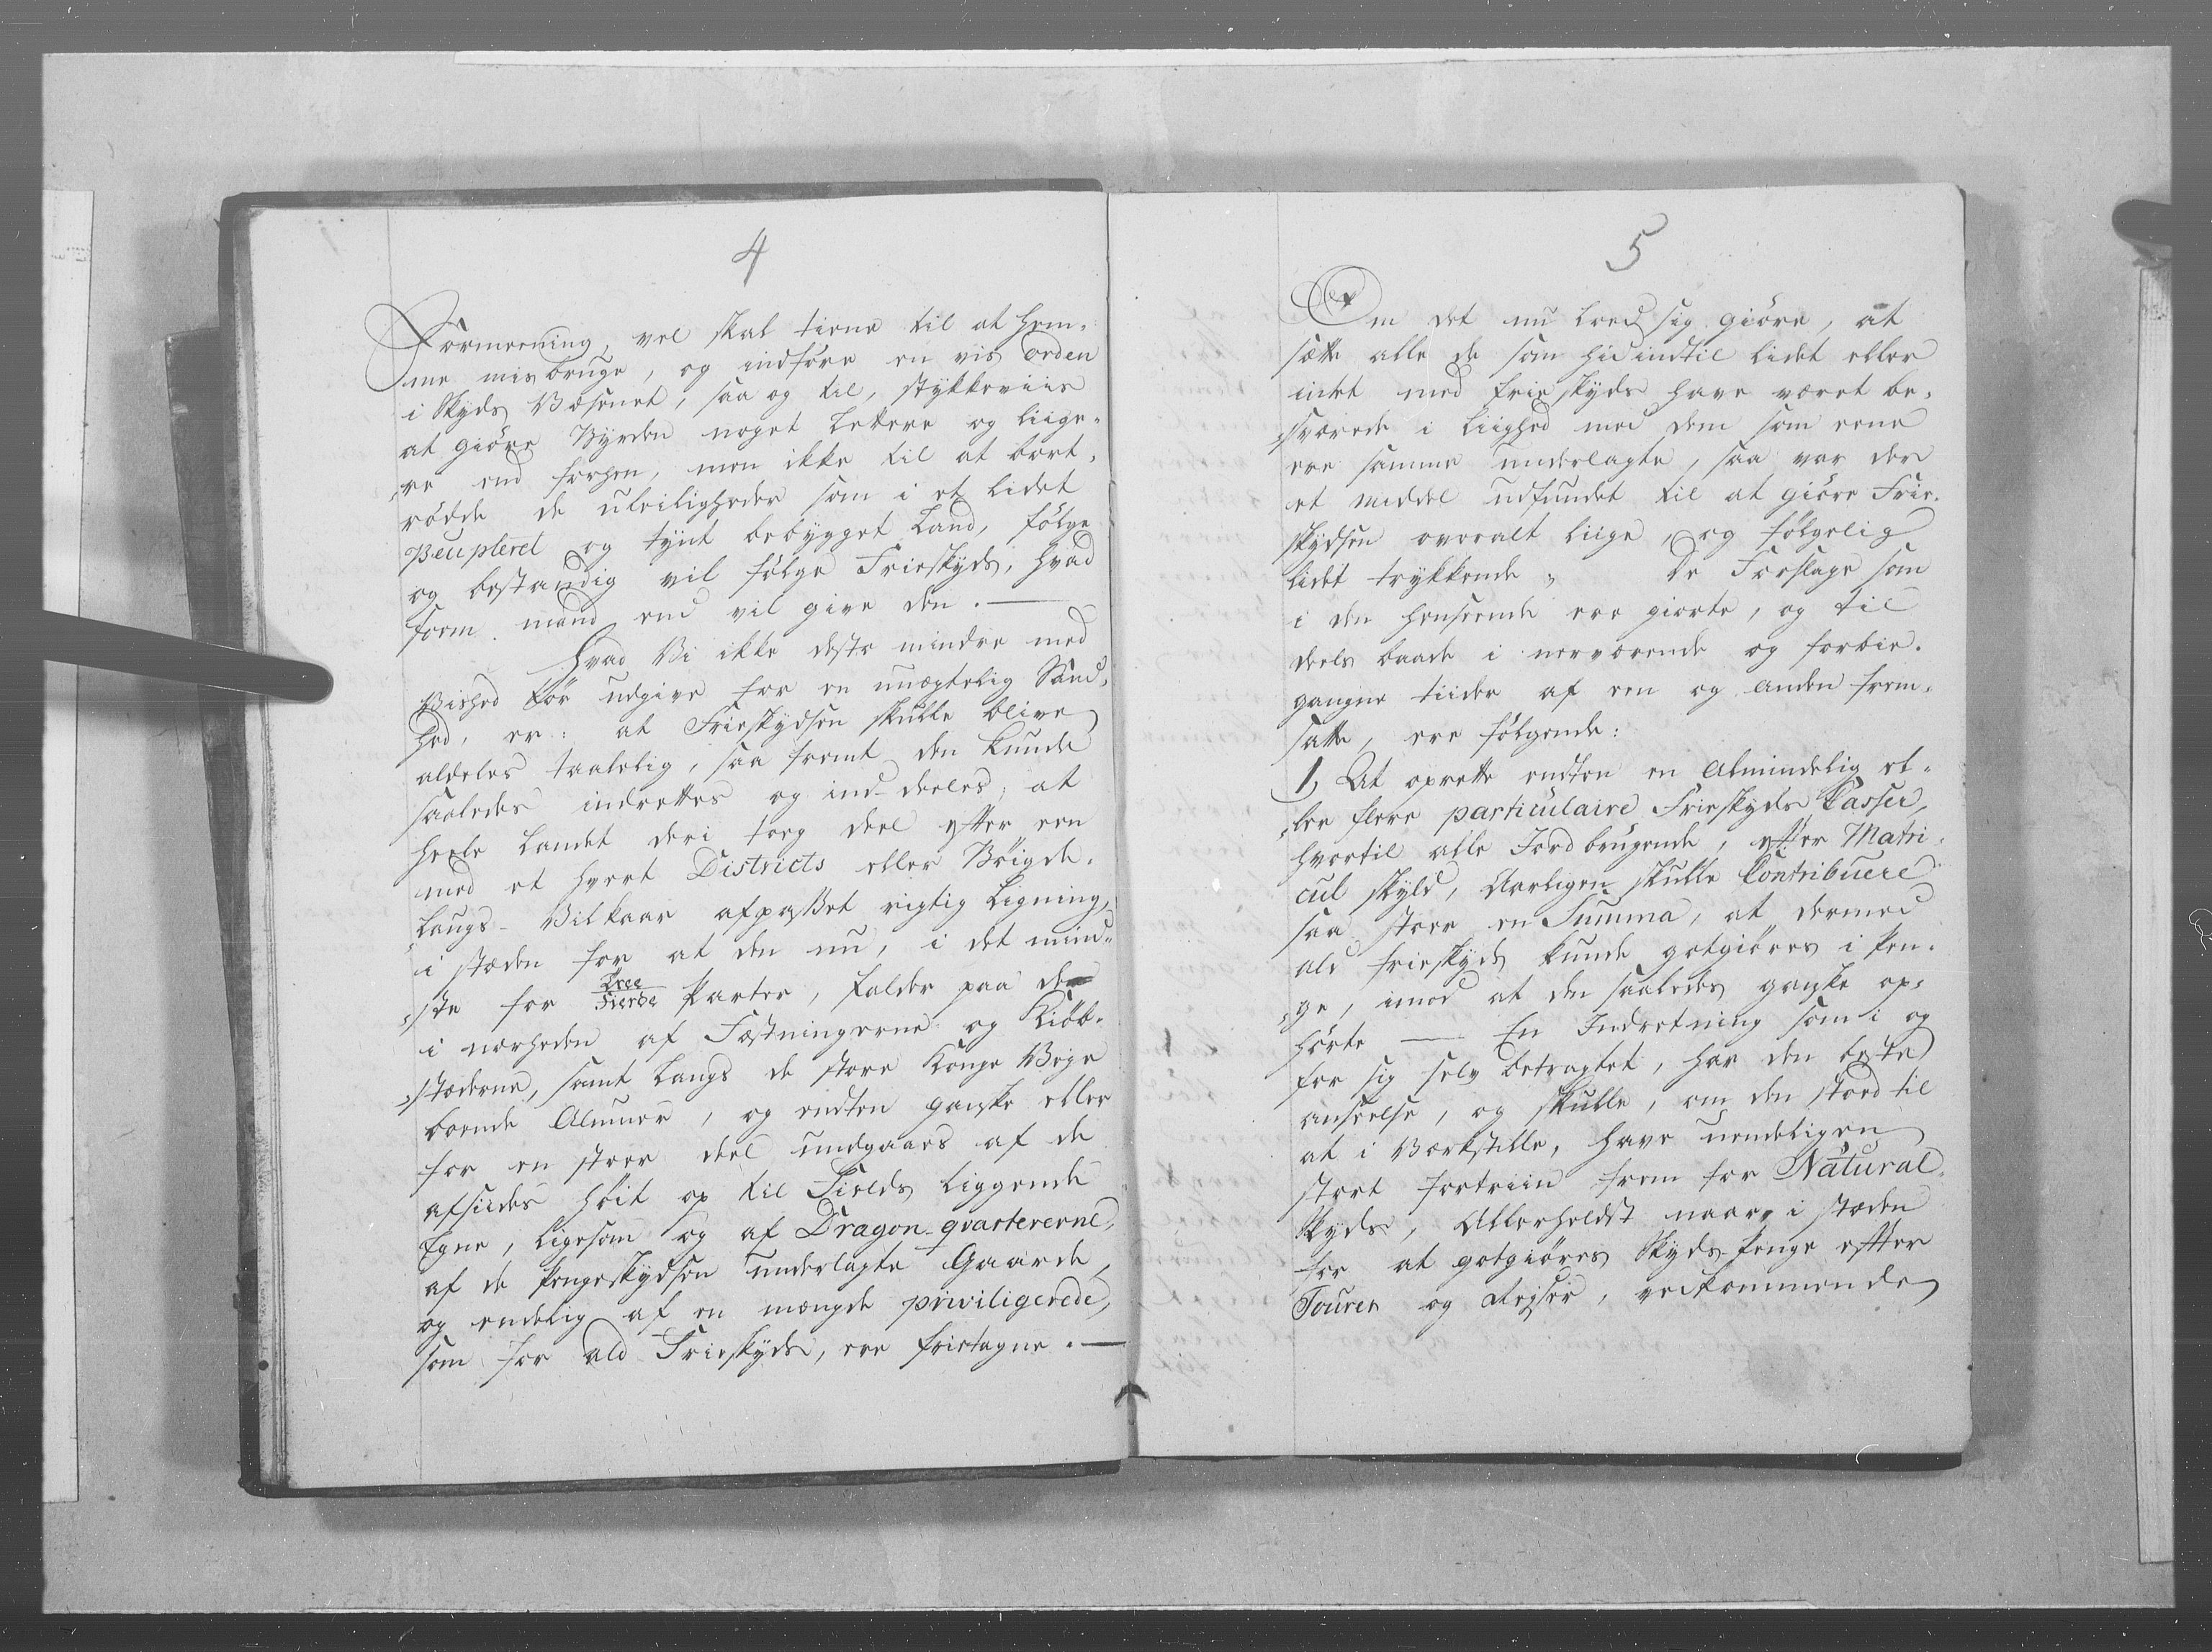 4
Formeening, vel skal tiene til at hem-
me misbruge, og indföre en vis orden
i Skyds Væsenet, saa og til, stykkeviis
at giöre Byrden noget Lettere og liige-
re end forhen, men ikke til at bort-
rödde de uleiligheder som i et lidet
Peupleret og tynt bebygget Land, fölge
og bestandig vil fölge Frieskyds, hvad
form mand end vil give den. —
Hvad Vi ikke desto mindre med
Vished tör udgive for en unægtelig Sand-
hed, er: at Frieskydsen skulle blive
aldeles taalelig, saa fremt den kunde
saaledes indrettes og ind-deeles, at
heele Landet deri tog deel efter een
med et hvert Districts eller Böigde-
Laugs Vilkaar afpasset rigtig Ligning,
i stæden for at den nu, i det mind-
ste for Tree Fierde Parter, falder paa de
i nærheden af Fæstningerne og Kiöb-
stæderne, samt langs de store Konge Veye
boende Almuer, og endten ganske eller
for en stoer deel undgaaes af de
afsiides höit op til Fields liggende
Egne, ligesom og af Dragon-qvartererne,
af de Pengeskydsen underlagte Gaarde,
og endelig af en mængde priviligerede,
som for ald Frieskyds, ere frietagne. —
5
Om det nu loed sig giöre, at
sætte alle de som hid indtil lidet eller
intet med frie skyds have været be-
sværede i Liighed med dem som eene
ere samme underlagte, saa var der
et middel udfundet til at giöre Frie-
skydsen overalt liige, og fölgelig
lidet trykkende; De Forslage som
i den henseende ere giorte, og til
deels baade i nerværende og forbie-
gangne tiider af een og anden frem-
satte, ere fölgende:
1, At oprette endten en Almindelig el-
ler flere particulaire Frieskyds Casser,
hvortil alle Jordbrugende, efter Matri-
cul skyld, Aarligen skulle Contribuere
saa stoer en Summa, at dermed
ald frieskyds kunde gotgiöres i Pen-
ge, imod at den saaledes ganske op-
hörte — En Indretning som i og
for sig selv betragtet, har den beste
anseelse, og skulle, om den stoed til
at i Værkstille, have uendeligen
stort fortriin frem for Natural-
Skyds, Allerheldst naar, i stæden
for at gotgiöres Skyds-Penge efter
Tourer og Reyser, vedkommende